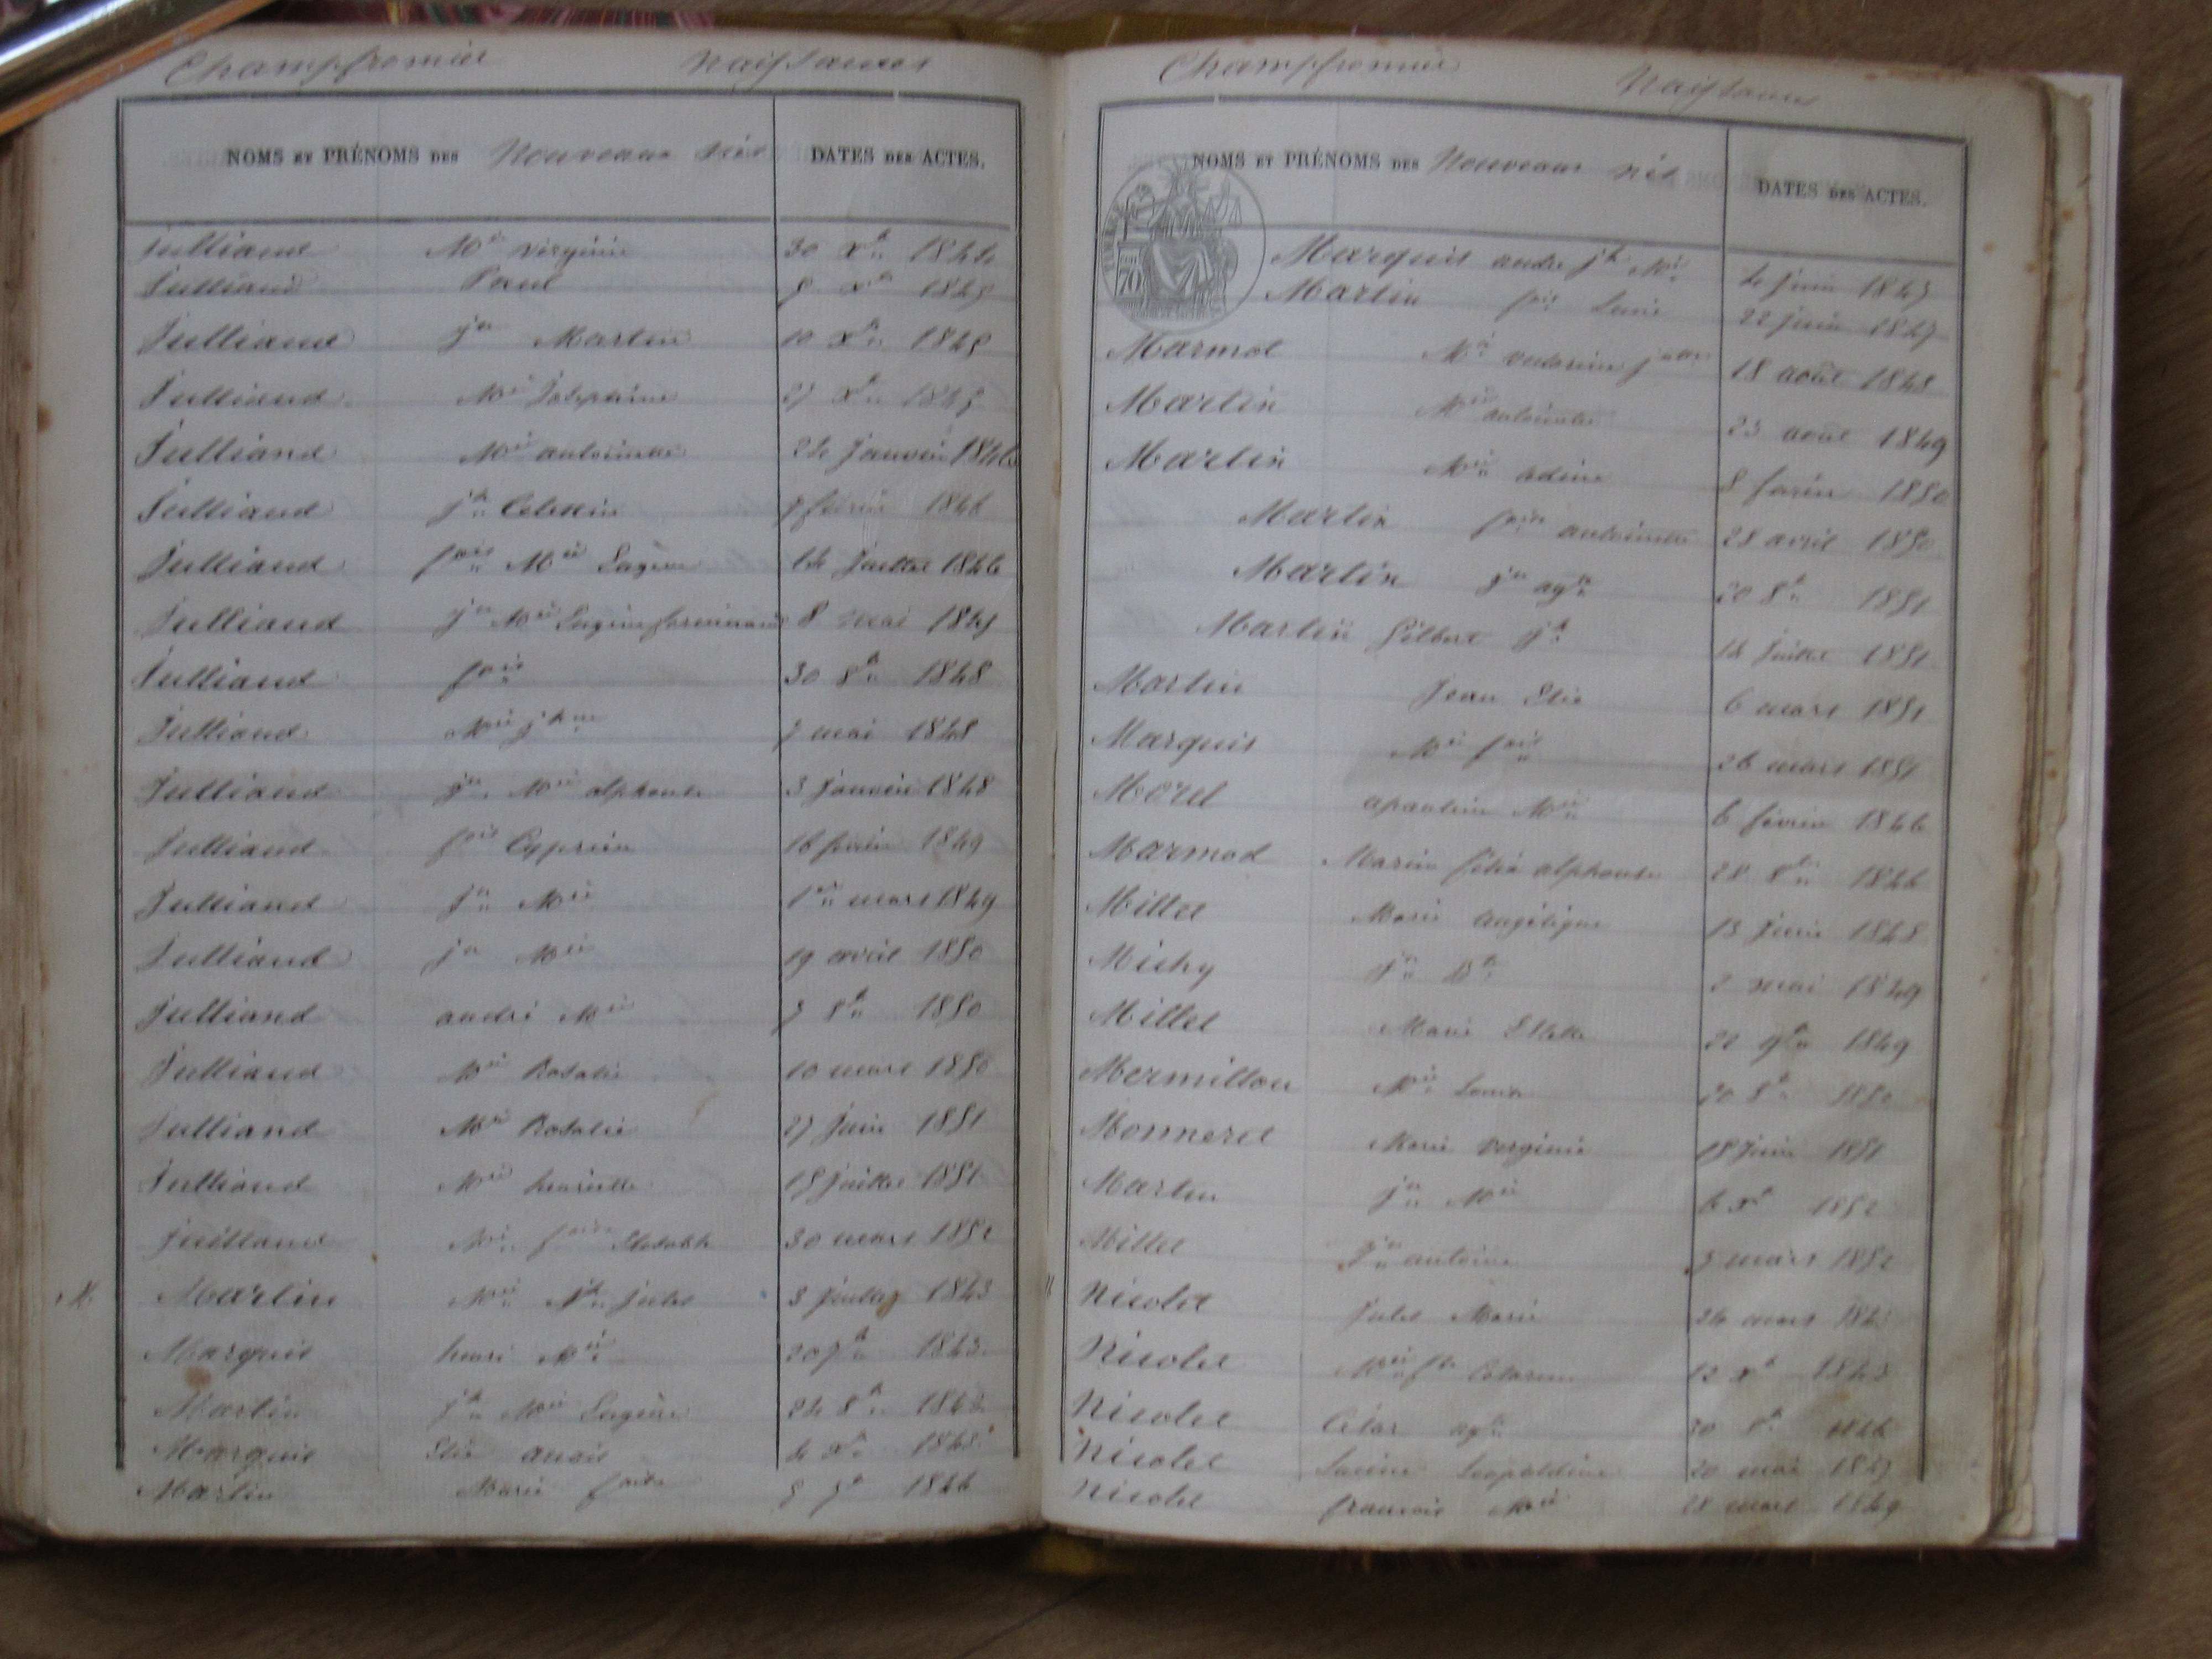 Champfromier Naissances
NOMS ET PRÉNOMS DES Nouveaux nés DATES DES ACTES.
Julliand Mie Virginie 30 Xbre 1844
Julliand Paul 5 Xbre 1845
Julliand jn Martin 10 Xbre 1845
Julliand Mie Joséphine 27 Xbre 1845
Julliand Mie antoinette 24 Janvier 1846
Julliand jh Celestin 7 février 1846
Julliand fois Mie Eugène 14 Juillet 1846
Julliand jn Mie Eugène 8 mai 1847
Julliand fois 30 8bre 1848
Julliand Mie 7 mai 1848
Julliand jn Mie alphonse 3 Janvier 1848
Julliand fois Cyprien 16 février 1849
Julliand jn Mie 1er mars 1849
Julliand jn Mie 19 avril 1850
Julliand andré Mie 7 8bre 1850
Julliand Mie Rosalie 10 mars 1850
Julliand Mie Rosalie 27 Juin 1851
Julliand Mie henriette 15 Juillet 1851
Juilland Mie 30 mars 1852
M. Martin Mie jh jules 3 Juillet 1843
Marquis henri Mie 20 7bre 1843
Martin jh Mie Eugène 24 8bre 1843
Marquis Elie 4 Xbre 1845
Martin Marie foise 5 7bre 1846
Champfromier Naissances
NOMS ET PRÉNOMS DES Nouveaux nés DATES DES ACTES.
70
Marquis andré jh Mie 4 juin 1847
Martin fois Louis 22 juin 1847
Marmot Mie 18 août 1848
Martin Mie antoinette 23 août 1849
Martin Mie adine 8 février 1850
Martin foise antoinette 28 avril 1850
Martin jn agte 20 8bre 1851
Martin Gilbert jh 14 Juillet 1851
Martin Jean Elie 6 mars 1851
Marquis Mie fois 26 mars 1851
Morel Mie 6 février 1846
Marmod Marie félix alphonse 28 8bre 1846
Millet Marie angélique 13 Juin 1848
Michy jn Bte 2 mai 1849
Millet Marie 22 9bre 1849
Mermillon Mie Louis 20 8bre 1850
Monneret Marie Virginie 18 Juin 1851
Martin jn Mie 6 Xbre 1852
Millet jn antoine 3 mars 1852
Nicolet Jules Marie 24 mars
Nicolet Mie 12 Xbre 1843
Nicolet César agte 30 1846
Nicolet Léopoldine 20 mai 1847
Nicolet francois Mie 28 mars 1849